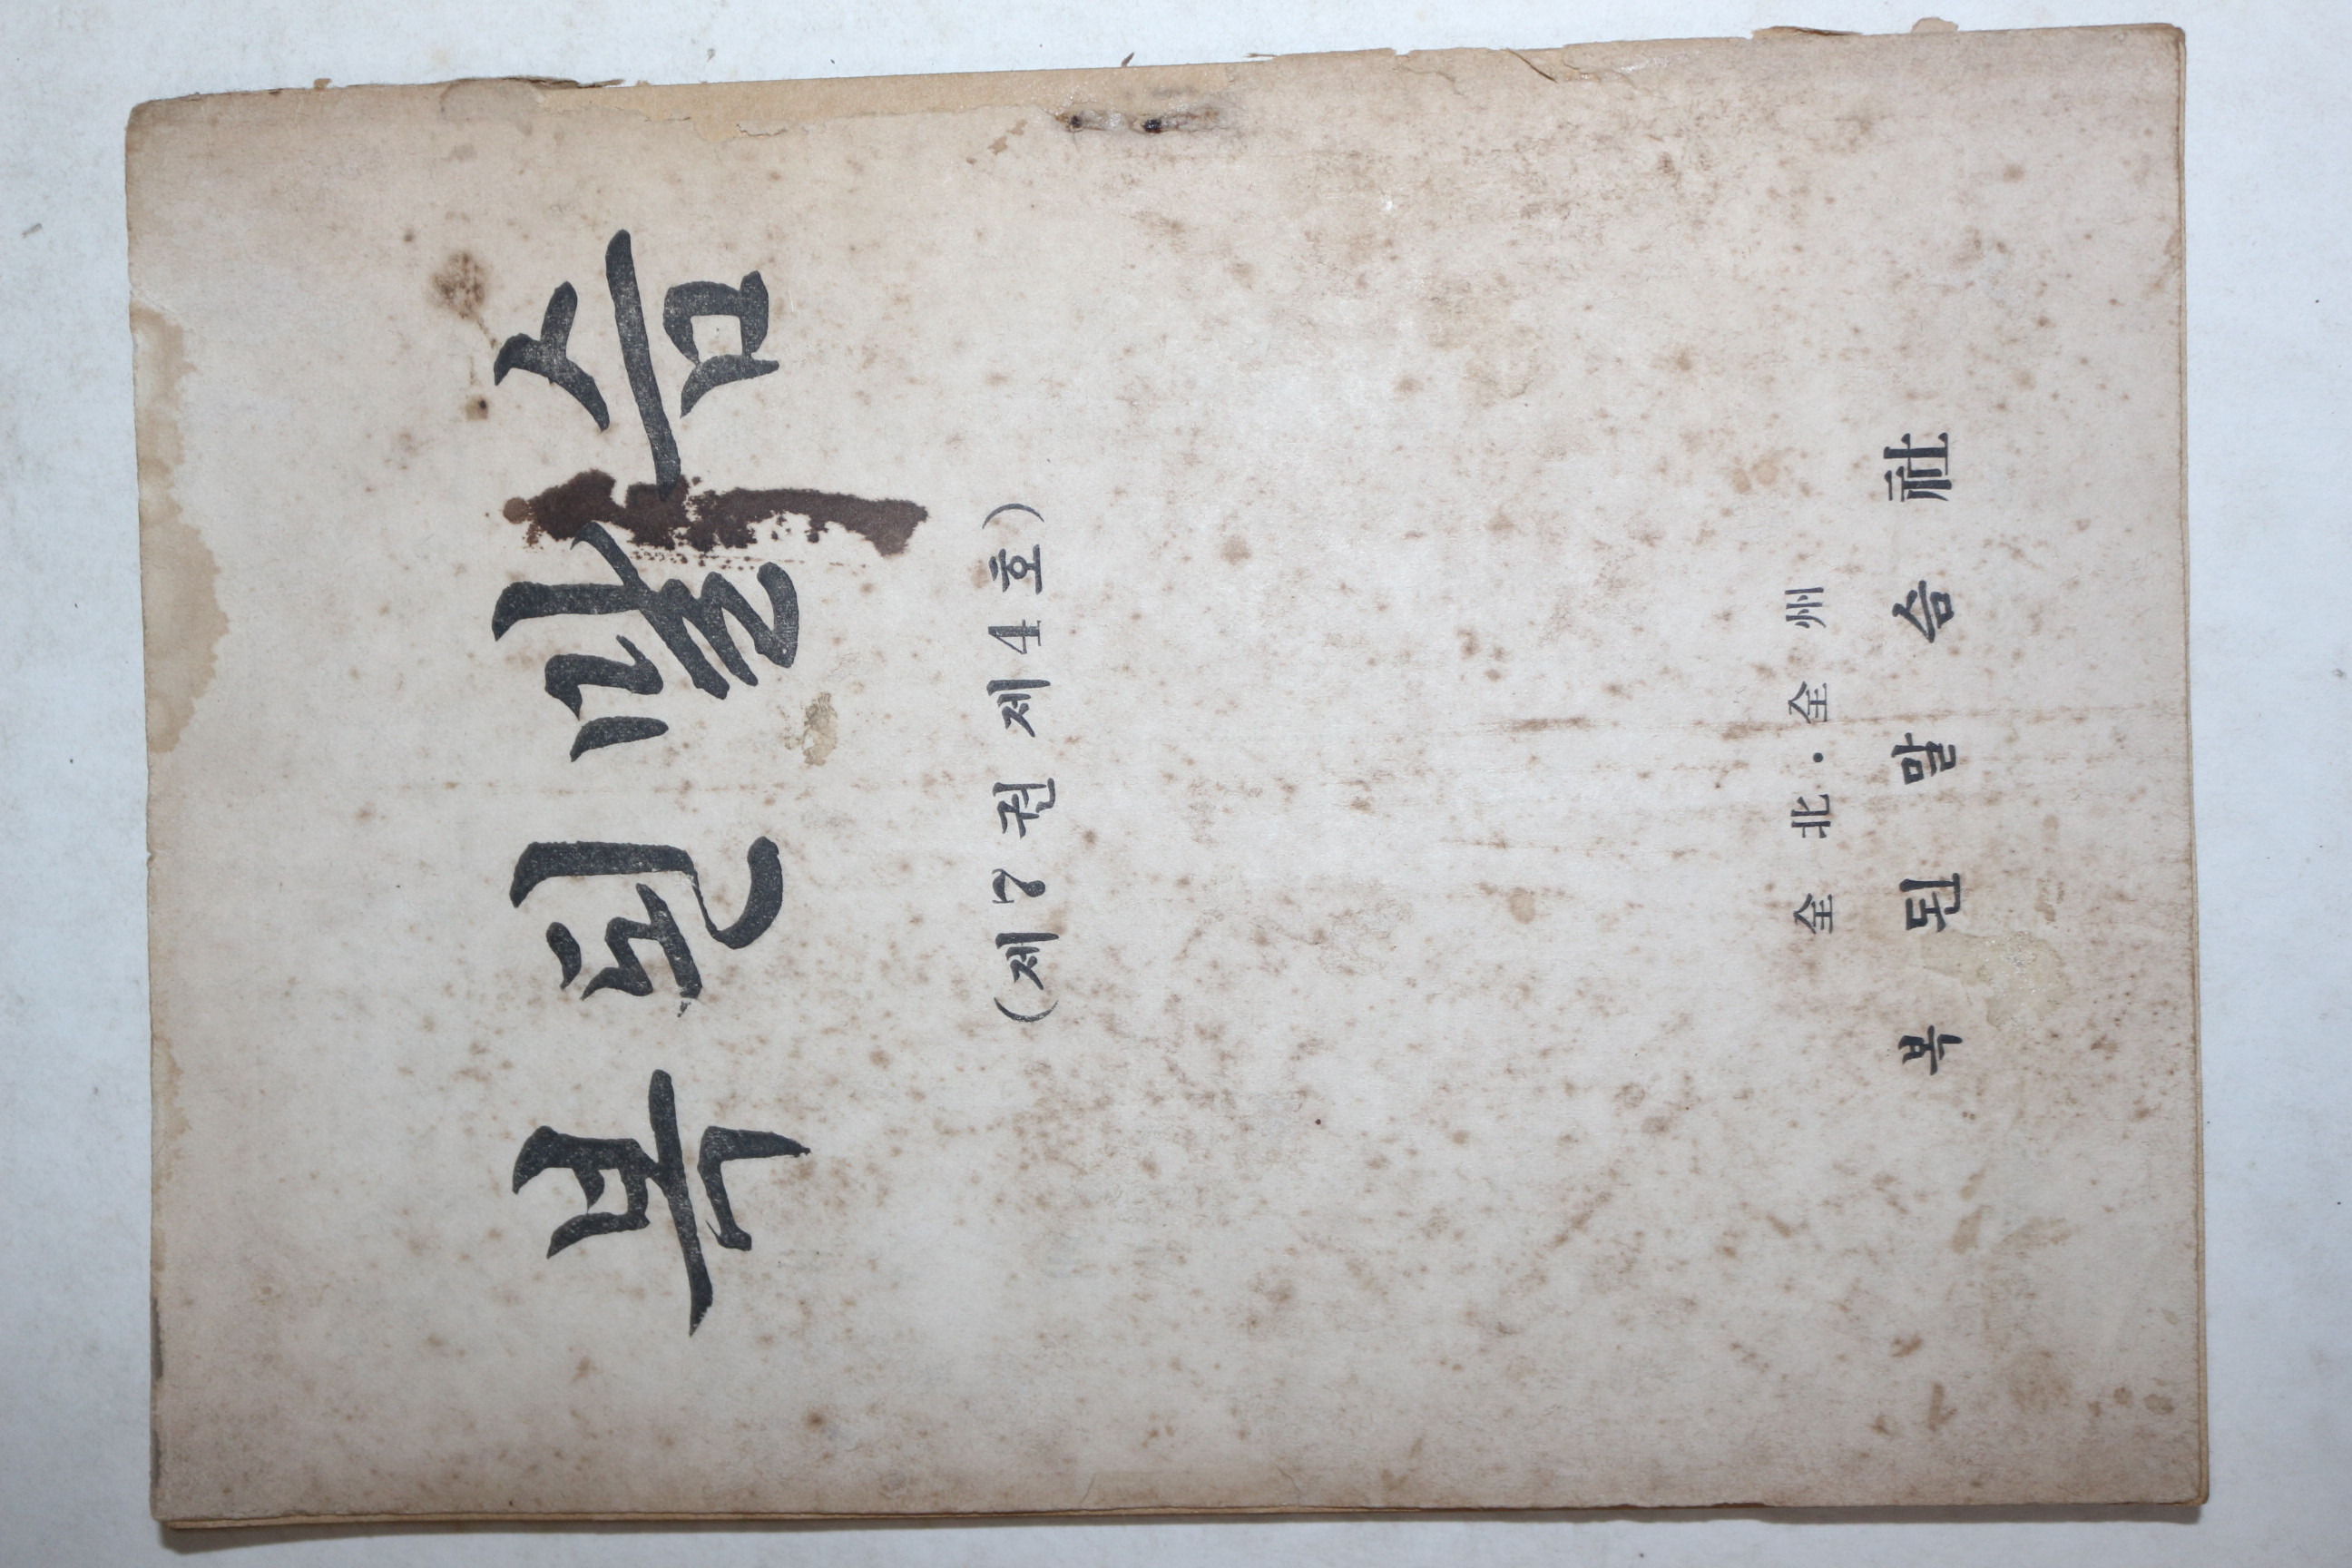 복된말슴
(제7권 제4호)
全北·全州
복된말슴社